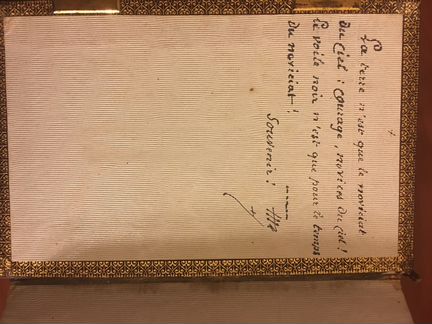 +
La terre n'est que le noviciat
du ciel ; courage, novices du ciel !
le voile noir n'est que pour le temps
du noviciat !
Souvenir !